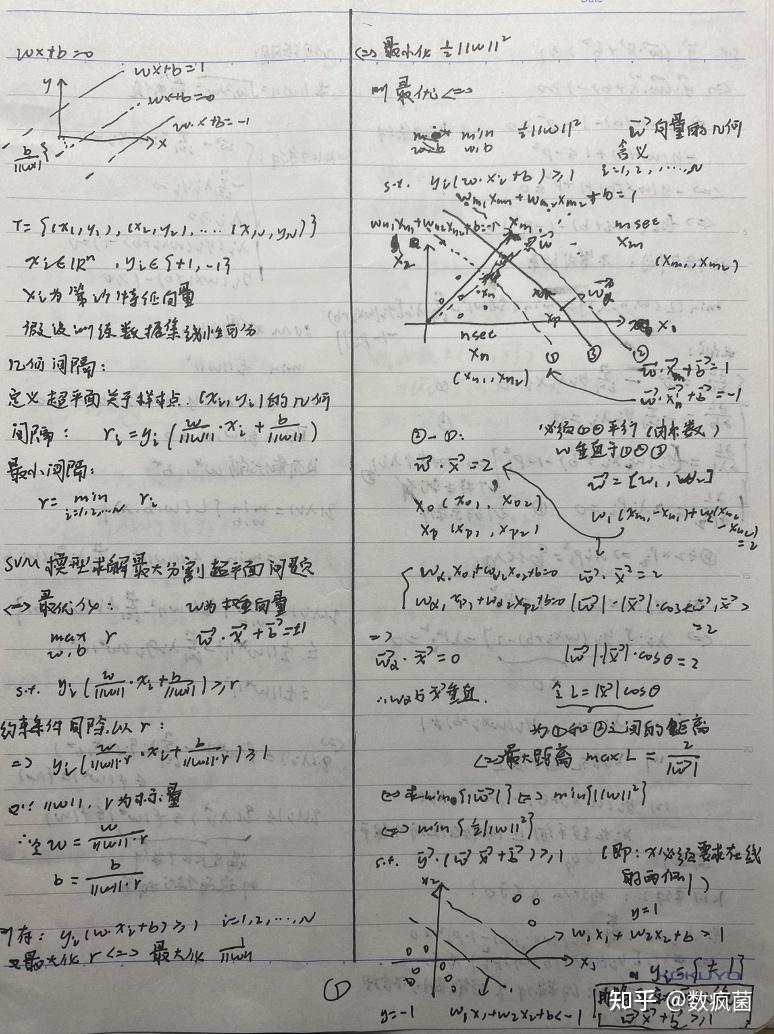 wx+b=0
wx+b=1
y
wx+b=0
w·x+b=-1
x
b
||w||
T={(x1,y1),(x2,y2),...(xN,yN)}
xi∈Rⁿ, yi∈{+1,-1}
xi为第i个特征向量
假设训练数据集线性可分
几何间隔:
定义超平面关于样本点(xi,yi)的几何
间隔: ri=yi(w/||w||·xi+b/||w||)
最小间隔:
r=min ri
i=1,2,...,N
SVM模型求解最大分割超平面问题
<=>最优化: w为法向量
max r w⃗·x⃗+b⃗=±1
w,b
s.t. yi(w/||w||·xi+b/||w||)≥r
约束条件同除以r:
=> yi(w/||w||·r·xi+b/||w||·r)≥1
又∵||w||, r为标量
∴令w=w/||w||·r
b=b/||w||·r
可有: yi(w·xi+b)≥1 i=1,2,...,N
又最大化r<=>最大化1/||w||
<=>最小化½||w||²
则最优<=>
min ½||w||²
w,b
w⃗向量的几何
含义
s.t. yi(w·xi+b)≥1 i=1,2,...,N
wm1xm1+wm2xm2+b=1
wn1xn1+wn2xn2+b=-1
xm
w⃗
mset
xm
(xm1,xm2)
x2
xn
xp
x1
nset
xn
(xn1,xn2)
① ③ ②
w⃗·x⃗m+b⃗=1
w⃗·x⃗n+b⃗=-1
②-①:
w⃗·x⃗=2
w垂直于①②③
w⃗=[w1,w2]
x0(x01,x02)
xp(xp1,xp2)
w1(xm1-xn1)+w2(xm2-xn2)=2
w⃗·x⃗=2
|w⃗|·|x⃗|·cos<w⃗,x⃗>=2
=>
w⃗α·x⃗=0
|w⃗||x⃗|·cosθ=2
∴wα与x⃗垂直.
令L=|x⃗|cosθ
为①和②之间的距离
<=>最大距离 max L=2/|w⃗|
<=>求min{|w⃗|}<=>min{||w||²}
<=>min{½||w||²}
s.t. y⃗·(w⃗x⃗+b⃗)≥1, (即:x必须要求在线
的两侧)
x2
y=1
w1x1+w2x2+b>1
x1
yi={±1}
y=-1 w1x1+w2x2+b<-1
w⃗x⃗+b⃗≥1
①
知乎 @数疯菌